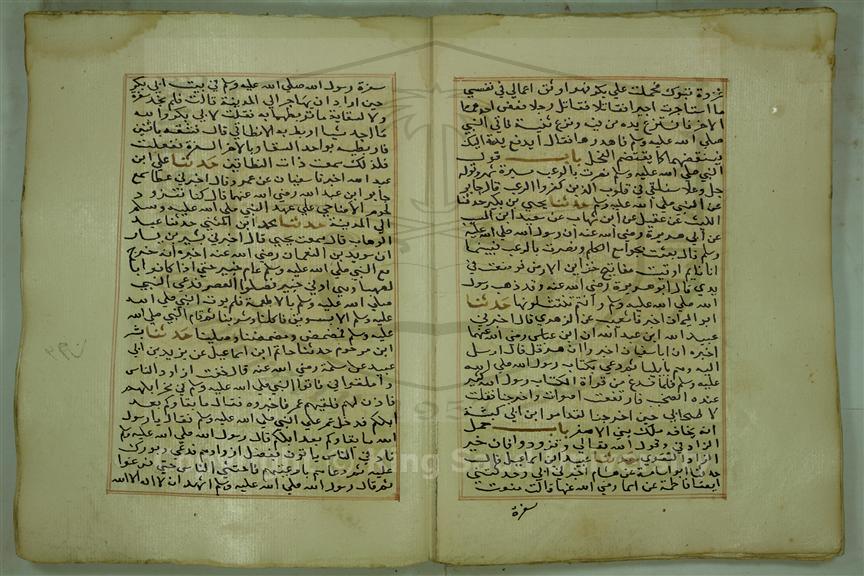 غزوة تبوك فحملت على بكر فهو اوثق اعمالي في نفسي
فاستاجرت اجيرا فقاتل رجلا فعض احدهما
الاخر فانتزع يده من فيه ونزع ثنيته فاتى النبي
صلى الله عليه وسلم فاهدرها فقال ايدفع يده اليك
فتقضمها كما يقضم الفحل باب قول
النبي صلى الله عليه وسلم نصرت بالرعب مسيرة شهر وقوله
جل وعلا سنلقي في قلوب الذين كفروا الرعب قال جابر
عن النبي صلى الله عليه وسلم حدثنا يحيى بن بكير حدثنا
الليث عن عقيل عن ابن شهاب عن سعيد ابن المسيب
عن ابي هريرة رضي الله عنه ان رسول الله صلى الله عليه
وسلم قال بعثت بجوامع الكلم ونصرت بالرعب فبينما
انا نائم اوتيت مفاتيح خزاين الارض فوضعت في
يدي قال ابو هريرة رضي الله عنه وقد ذهب رسول
الله صلى الله عليه وسلم وانتم تنتثلونها حدثنا
ابو اليمان اخبرنا شعيب عن الزهري قال اخبرني
عبيد الله ابن عبد الله ان ابن عباس رضي الله عنهما
اخبره ان ابا سفيان اخبره ان هرقل ارسل
اليه وهم بايليا ثم دعى بكتاب رسول الله صلى الله
عليه وسلم فلما فرغ من قراة الكتاب كثر
عنده الصخب فارتفعت اصوات واخرجنا فقلت
لاصحابي حين اخرجنا لقد امر ابن ابي كبشة
انه يخافه ملك بني الاصفر باب حمل
الزاد في وقول الله تعالى وتزودوا فان خير
الزاد التقوى حدثنا عبيد ابن اسماعيل قال
حدثنا ابو اسامة عن هشام اخبرني ابي وحدثتني
ايضا فاطمة عن اسما رضي الله عنها قالت صنعت
سفرة
سفرة رسول الله صلى الله عليه وسلم في بيت ابي بكر
حين اراد ان يهاجر الى المدينة قالت فلم نجد لسفرته
ولا لسقايه ما نربطهما به فقلت لابي بكر والله
ما اجد شيا اربط به الا نطاقي قال فشقيه باثنين
فاربطيه بواحد السقا وبالاخر السفرة ففعلت
فلذلك سميت ذات النطاقين حدثنا علي ابن
عبد الله اخبرنا سفيان عن عمرو قال اخبرني عطا سمع
جابر ابن عبد الله رضي الله عنهما قال كنا نتزود
لحوم الاضاحي على عهد النبي صلى الله عليه وسلم
الى المدينة حدثنا محمد ابن المثنى حدثنا عبد
الوهاب قال سمعت يحيى قال اخبرني بشير بن يسار
ان سويد بن النعمان رضي الله عنه اخبره انه خرج
مع النبي صلى الله عليه وسلم عام خيبر حتى اذا كانوا بالصهبا
وهي ادنى خيبر فصلوا العصر فدعى النبي
صلى الله عليه وسلم بالاطعمة فلم يوت النبي صلى الله
عليه وسلم الا بسويق فاكلنا وشربنا ثم قام النبي صلى الله
عليه وسلم فمضمض ومضمضنا وصلينا حدثنا بشر
ابن مرحوم حدثنا حاتم ابن اسماعيل عن يزيد بن ابي
عبيد عن سلمة رضي الله عنه قال خفت ازواد الناس
واملقوا فاتوا النبي صلى الله عليه وسلم في نحر ابلهم
فاذن لهم فلقيهم عمر فاخبروه فقال ما بقاوكم بعد
ابلكم فدخل عمر على النبي صلى الله عليه وسلم فقال يا رسول
الله ما بقاوهم بعد ابلهم قال رسول الله صلى الله عليه وسلم
ناد في الناس ياتون بفضل ازوادهم فدعى وبرك
عليه ثم دعاهم باوعيتهم فاحتثى الناس حتى فرغوا
ثم قال رسول الله صلى الله عليه وسلم اشهد ان لا اله الا الله